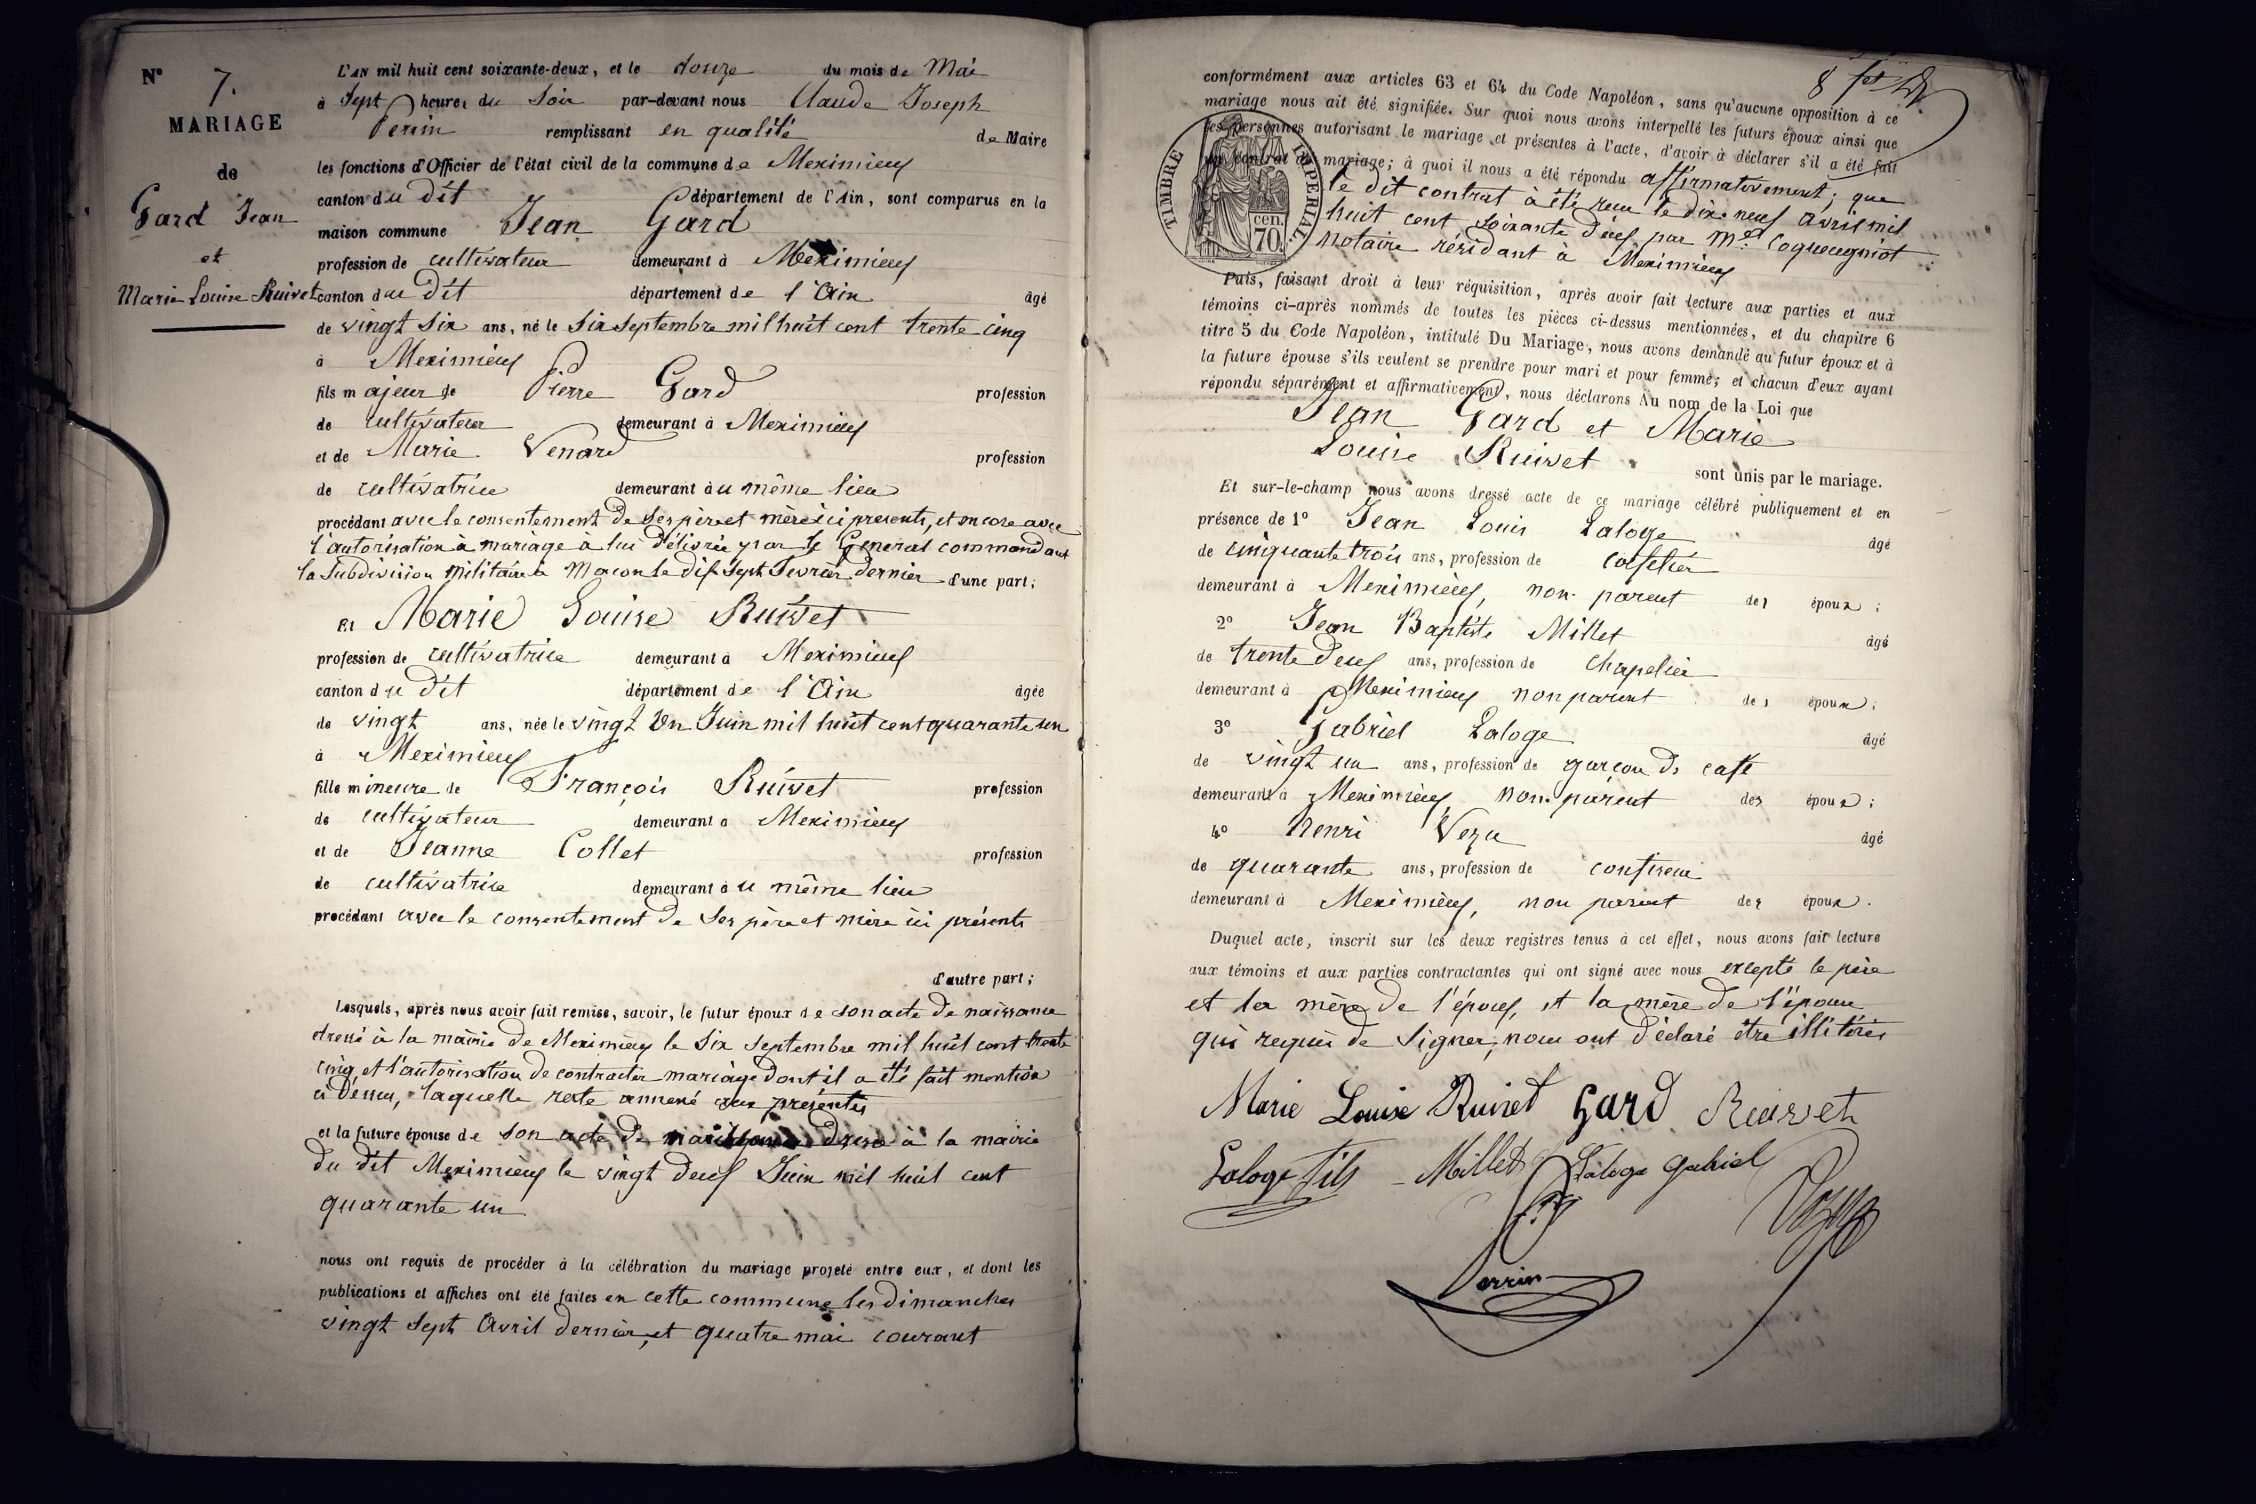 N° 7.
MARIAGE
de
Gard Jean
et
Marie Louise Ruivet
L'AN mil huit cent soixante-deux, et le douze du mois de Mai
à Sept heures du Soir par-devant nous Claude Joseph
Perrin remplissant en qualité de Maire
les fonctions d'Officier de l'état civil de la commune de Meximieux
canton du dit département de l'Ain, sont comparus en la
maison commune Jean Gard
profession de cultivateur demeurant à Meximieux
canton du dit département de l'Ain âgé
de vingt six ans, né le Six Septembre mil huit cent trente cinq
à Meximieux
fils majeur de Pierre Gard profession
de cultivateur demeurant à Meximieux
et de Marie Venard profession
de cultivatrice demeurant au même lieu
procédant avec le consentement de ses père et mère ici presents, et encore avec
l'autorisation à mariage à lui délivrée par le Général commandant
la Subdivision militaire à Macon le dix sept fevrier dernier d'une part;
Et Marie Louise Ruivet
profession de cultivatrice demeurant à Meximieux
canton du dit département de l'Ain âgée
de vingt ans, née le vingt un Juin mil huit cent quarante un
à Meximieux
fille mineure de François Ruivet profession
de cultivateur demeurant à Meximieux
et de Jeanne Collet profession
de cultivatrice demeurant au même lieu
procédant avec le consentement de ses père et mère ici présents
d'autre part;
Lesquels, après nous avoir fait remise, savoir, le futur époux de son acte de naissance
dressé à la mairie de Meximieux le Six Septembre mil huit cent trente
cinq, et l'autorisation de contracter mariage dont il a été fait mention
ci dessus, laquelle reste annexé aux présentes
et la future épouse de son acte de naissance dressé à la mairie
du dit Meximieux le vingt deux Juin mil huit cent
quarante un
nous ont requis de procéder à la célébration du mariage projeté entre eux, et dont les
publications et affiches ont été faites en cette commune les dimanches
vingt sept Avril dernier, et quatre mai courant
conformément aux articles 63 et 64 du Code Napoléon, sans qu'aucune opposition à ce
mariage nous ait été signifiée. Sur quoi nous avons interpellé les futurs époux ainsi que
les personnes autorisant le mariage et présentes à l'acte, d'avoir à déclarer s'il a été fait
un contrat de mariage; à quoi il nous a été répondu affirmativement; que
le dit contrat à été reçu le dix neuf avril mil
huit cent soixante deux par Me Coqueugniot
notaire résidant à Meximieux
TIMBRE IMPERIAL.
cen. 70.
Puis, faisant droit à leur réquisition, après avoir fait lecture aux parties et aux
témoins ci-après nommés de toutes les pièces ci-dessus mentionnées, et du chapitre 6
titre 5 du Code Napoléon, intitulé Du Mariage, nous avons demandé au futur époux et à
la future épouse s'ils veulent se prendre pour mari et pour femme; et chacun d'eux ayant
répondu séparément et affirmativement, nous déclarons Au nom de la Loi que
Jean Gard et Marie
Louise Ruivet sont unis par le mariage.
Et sur-le-champ nous avons dressé acte de ce mariage célébré publiquement et en
présence de 1° Jean Louis Laloge âgé
de cinquante trois ans, profession de caffetier
demeurant à Meximieux, non parent des époux;
2° Jean Baptiste Millet âgé
de trente deux ans, profession de chapelier
demeurant à Meximieux non parent des époux;
3° Gabriel Laloge âgé
de vingt un ans, profession de garçon de café
demeurant à Meximieux, non parent des époux;
4° Henri Vezu âgé
de quarante ans, profession de confiseur
demeurant à Meximieux, non parent des époux.
Duquel acte, inscrit sur les deux registres tenus à cet effet, nous avons fait lecture
aux témoins et aux parties contractantes qui ont signé avec nous excepté le père
et la mère de l'époux, et la mère de l'épouse
qui requis de signer, nous ont déclaré être illitérés
Marie Louise Ruivet Gard Ruivet
Laloge fils Millet Laloge Gabriel
Vezu
Perrin